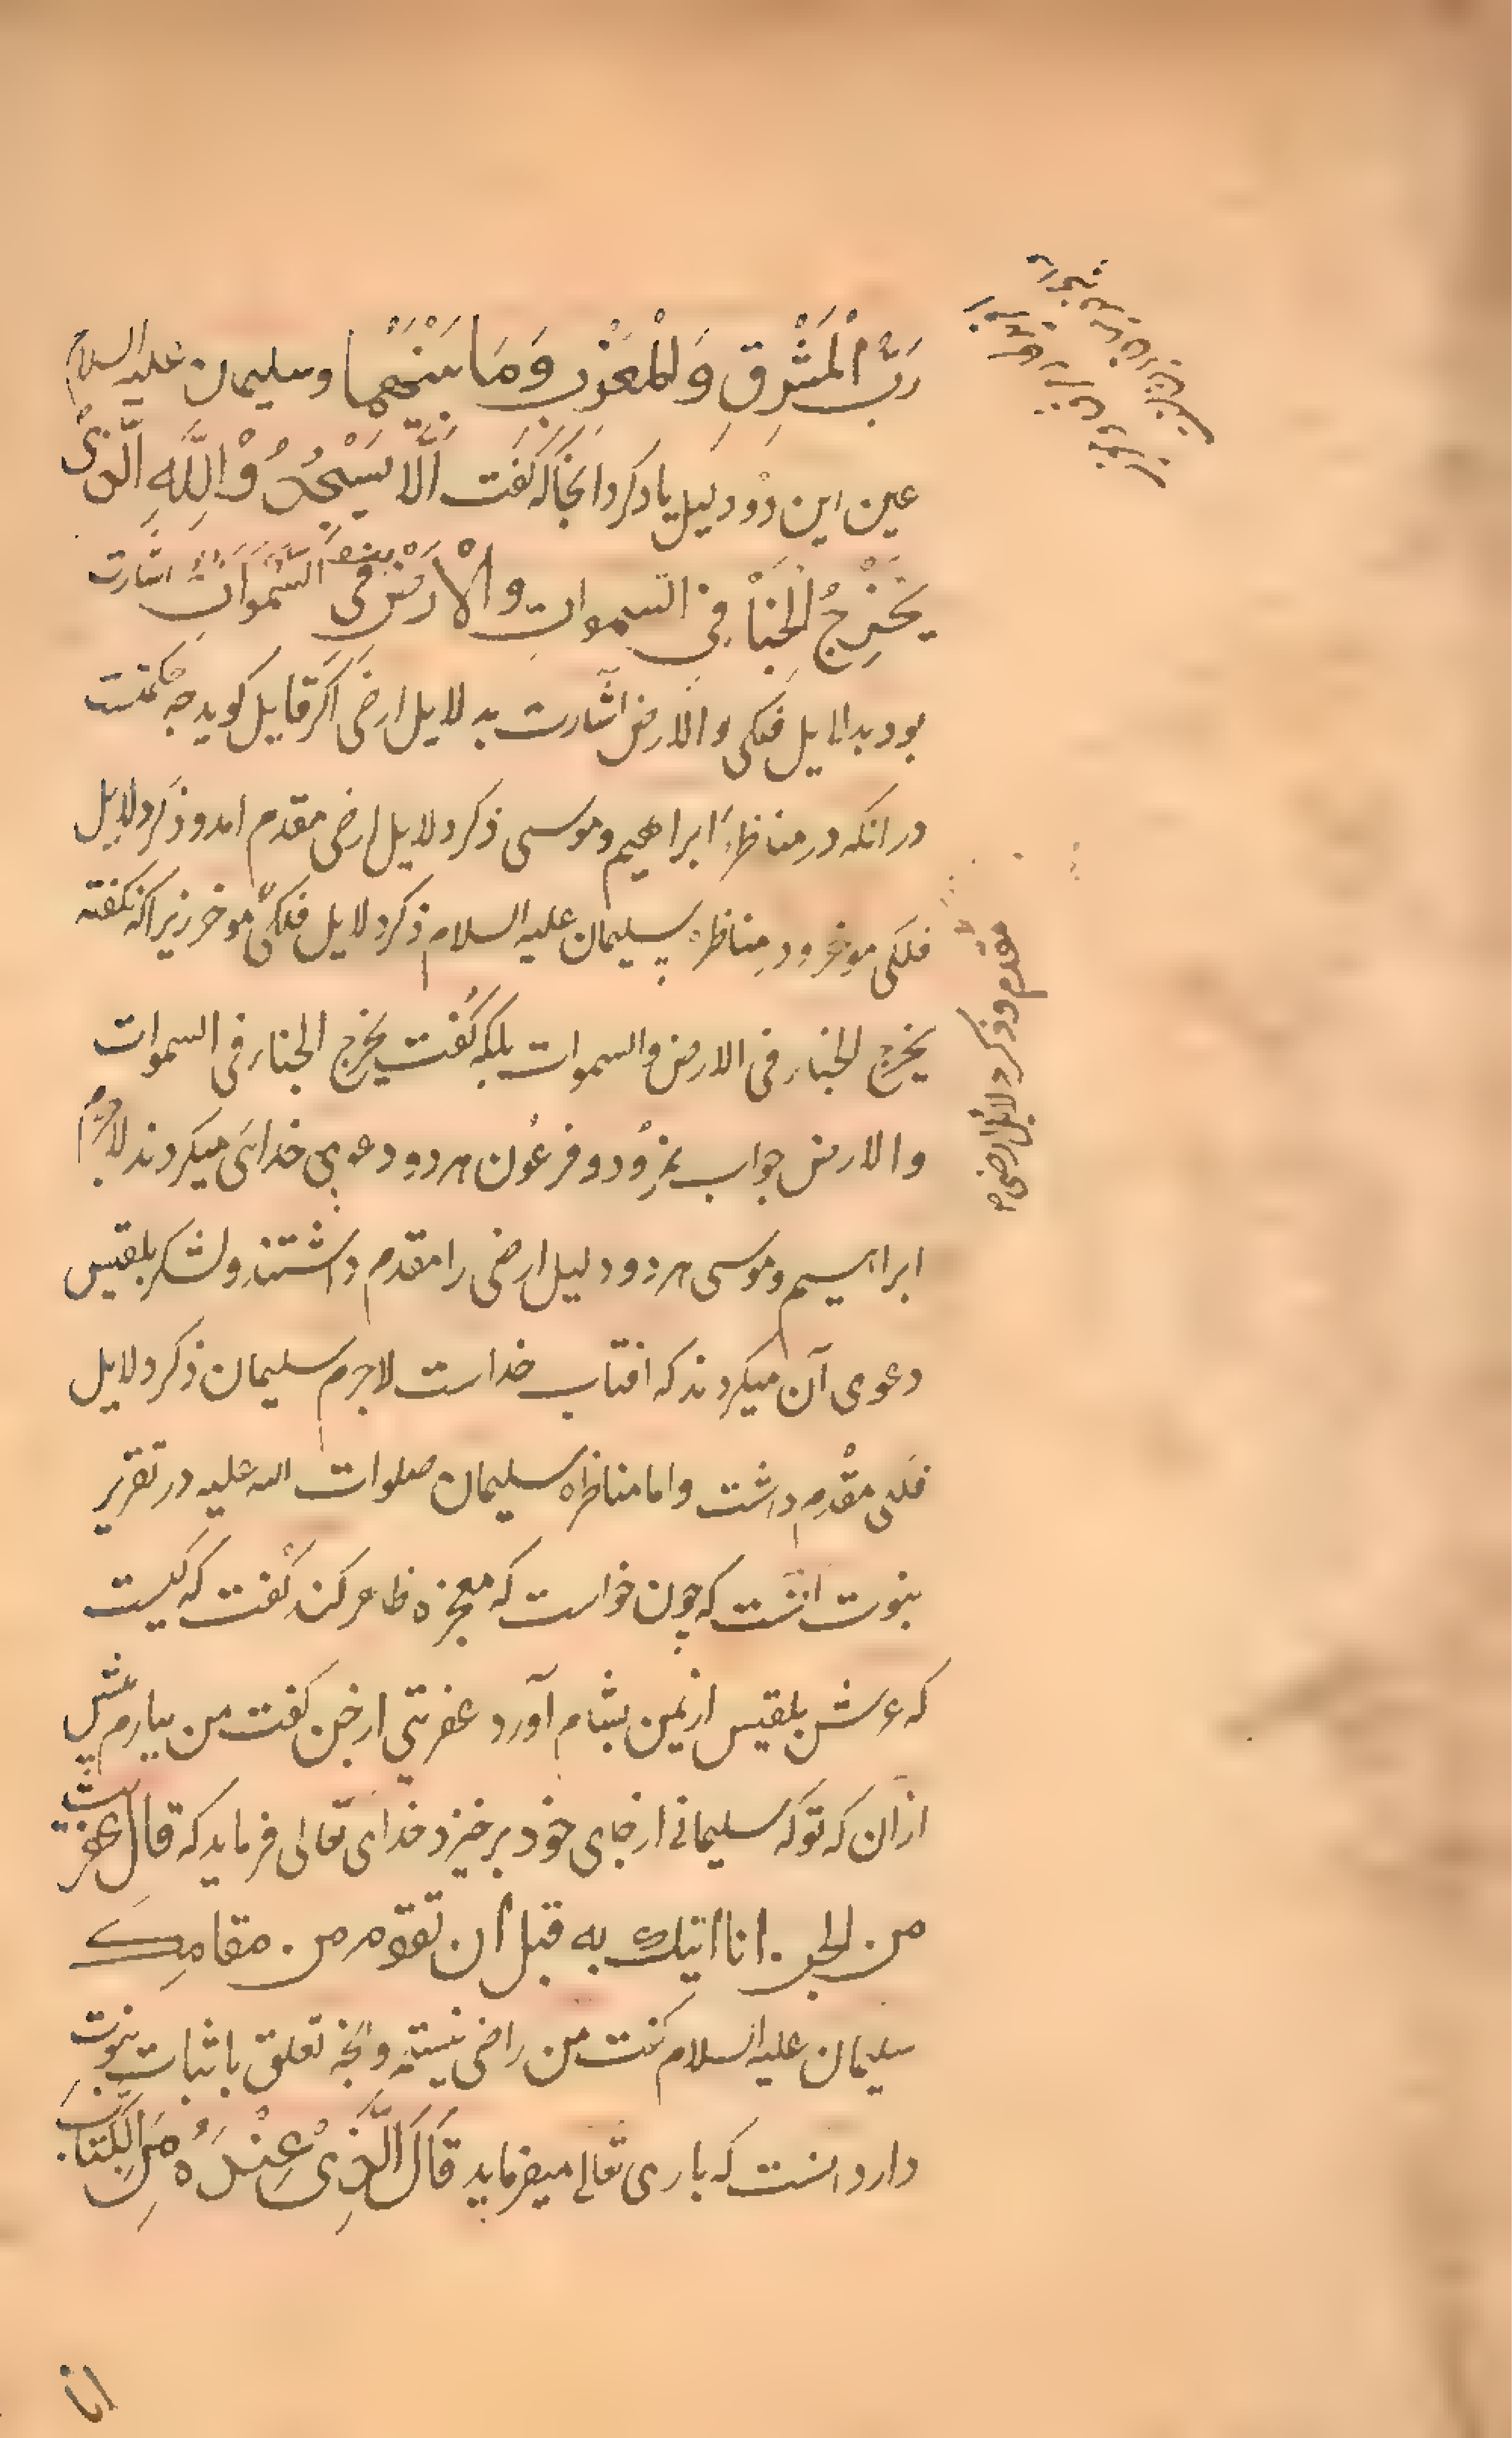 رَبُّ الْمَشْرِقِ وَالْمَغْرِبِ وَمَا بَيْنَهُمَا وسلیمان علیه السلام
عین این دو دلیل یاد کرد انجا که گفت اَلَّا يَسْجُدُوْا لِلَّهِ الَّذِىْ
يُخْرِجُ الْخَبْاَ فِي السموات والْاَرْضِ فی السَّمٰوَاتِ اشارت
بود بدلایل فلکی والارض اشارت بدلایل ارضی اکر قایل کوید چه حکمتست
در انکه در مناظرۀ ابراهیم وموسی ذکر دلایل ارضی مقدم امد و ذکر دلایل
فلکی موخر ودر مناظره سلیمان علیه السلام ذکر دلایل فلکی موخر زیرا که نکفته
یخرج الخباء فی الارض والسموات بلکه کفت یخرج الخباء فی السموات
والارض جواب نمرود و فرعون هر دو دعوی خدائی میکردند لاجرم
ابراهیم وموسی هر دو دلیل ارضی را مقدم داشتند ولشکر بلقیس
دعوی آن میکردند که افتاب خداست لاجرم سلیمان ذکر دلایل
فلکی مقدم داشت واما مناظره سلیمان صلوات الله علیه در تقریر
نبوت انست که چون خواست که معجزه ظاهر کند کفت که کیست
که عرش بلقیس از یمن بشام آورد عفریتی از جن کفت من بیارم پیش
ازان که تو که سلیمانی از جای خود برخیزد خدای تعالی فرماید که قال عفریت
من الجن انا اتیك به قبل أن تقوم من مقامك
سلیمان علیه السلام کفت من راضی نیستم وانچه تعلق باثبات نبوت
دارد انست که باری تعالی میفرماید قَالَ الَّذِىْ عِنْدَهُ مِنَ الْكِتَابِ
مقدم وذکر دلایل ارضی
انا